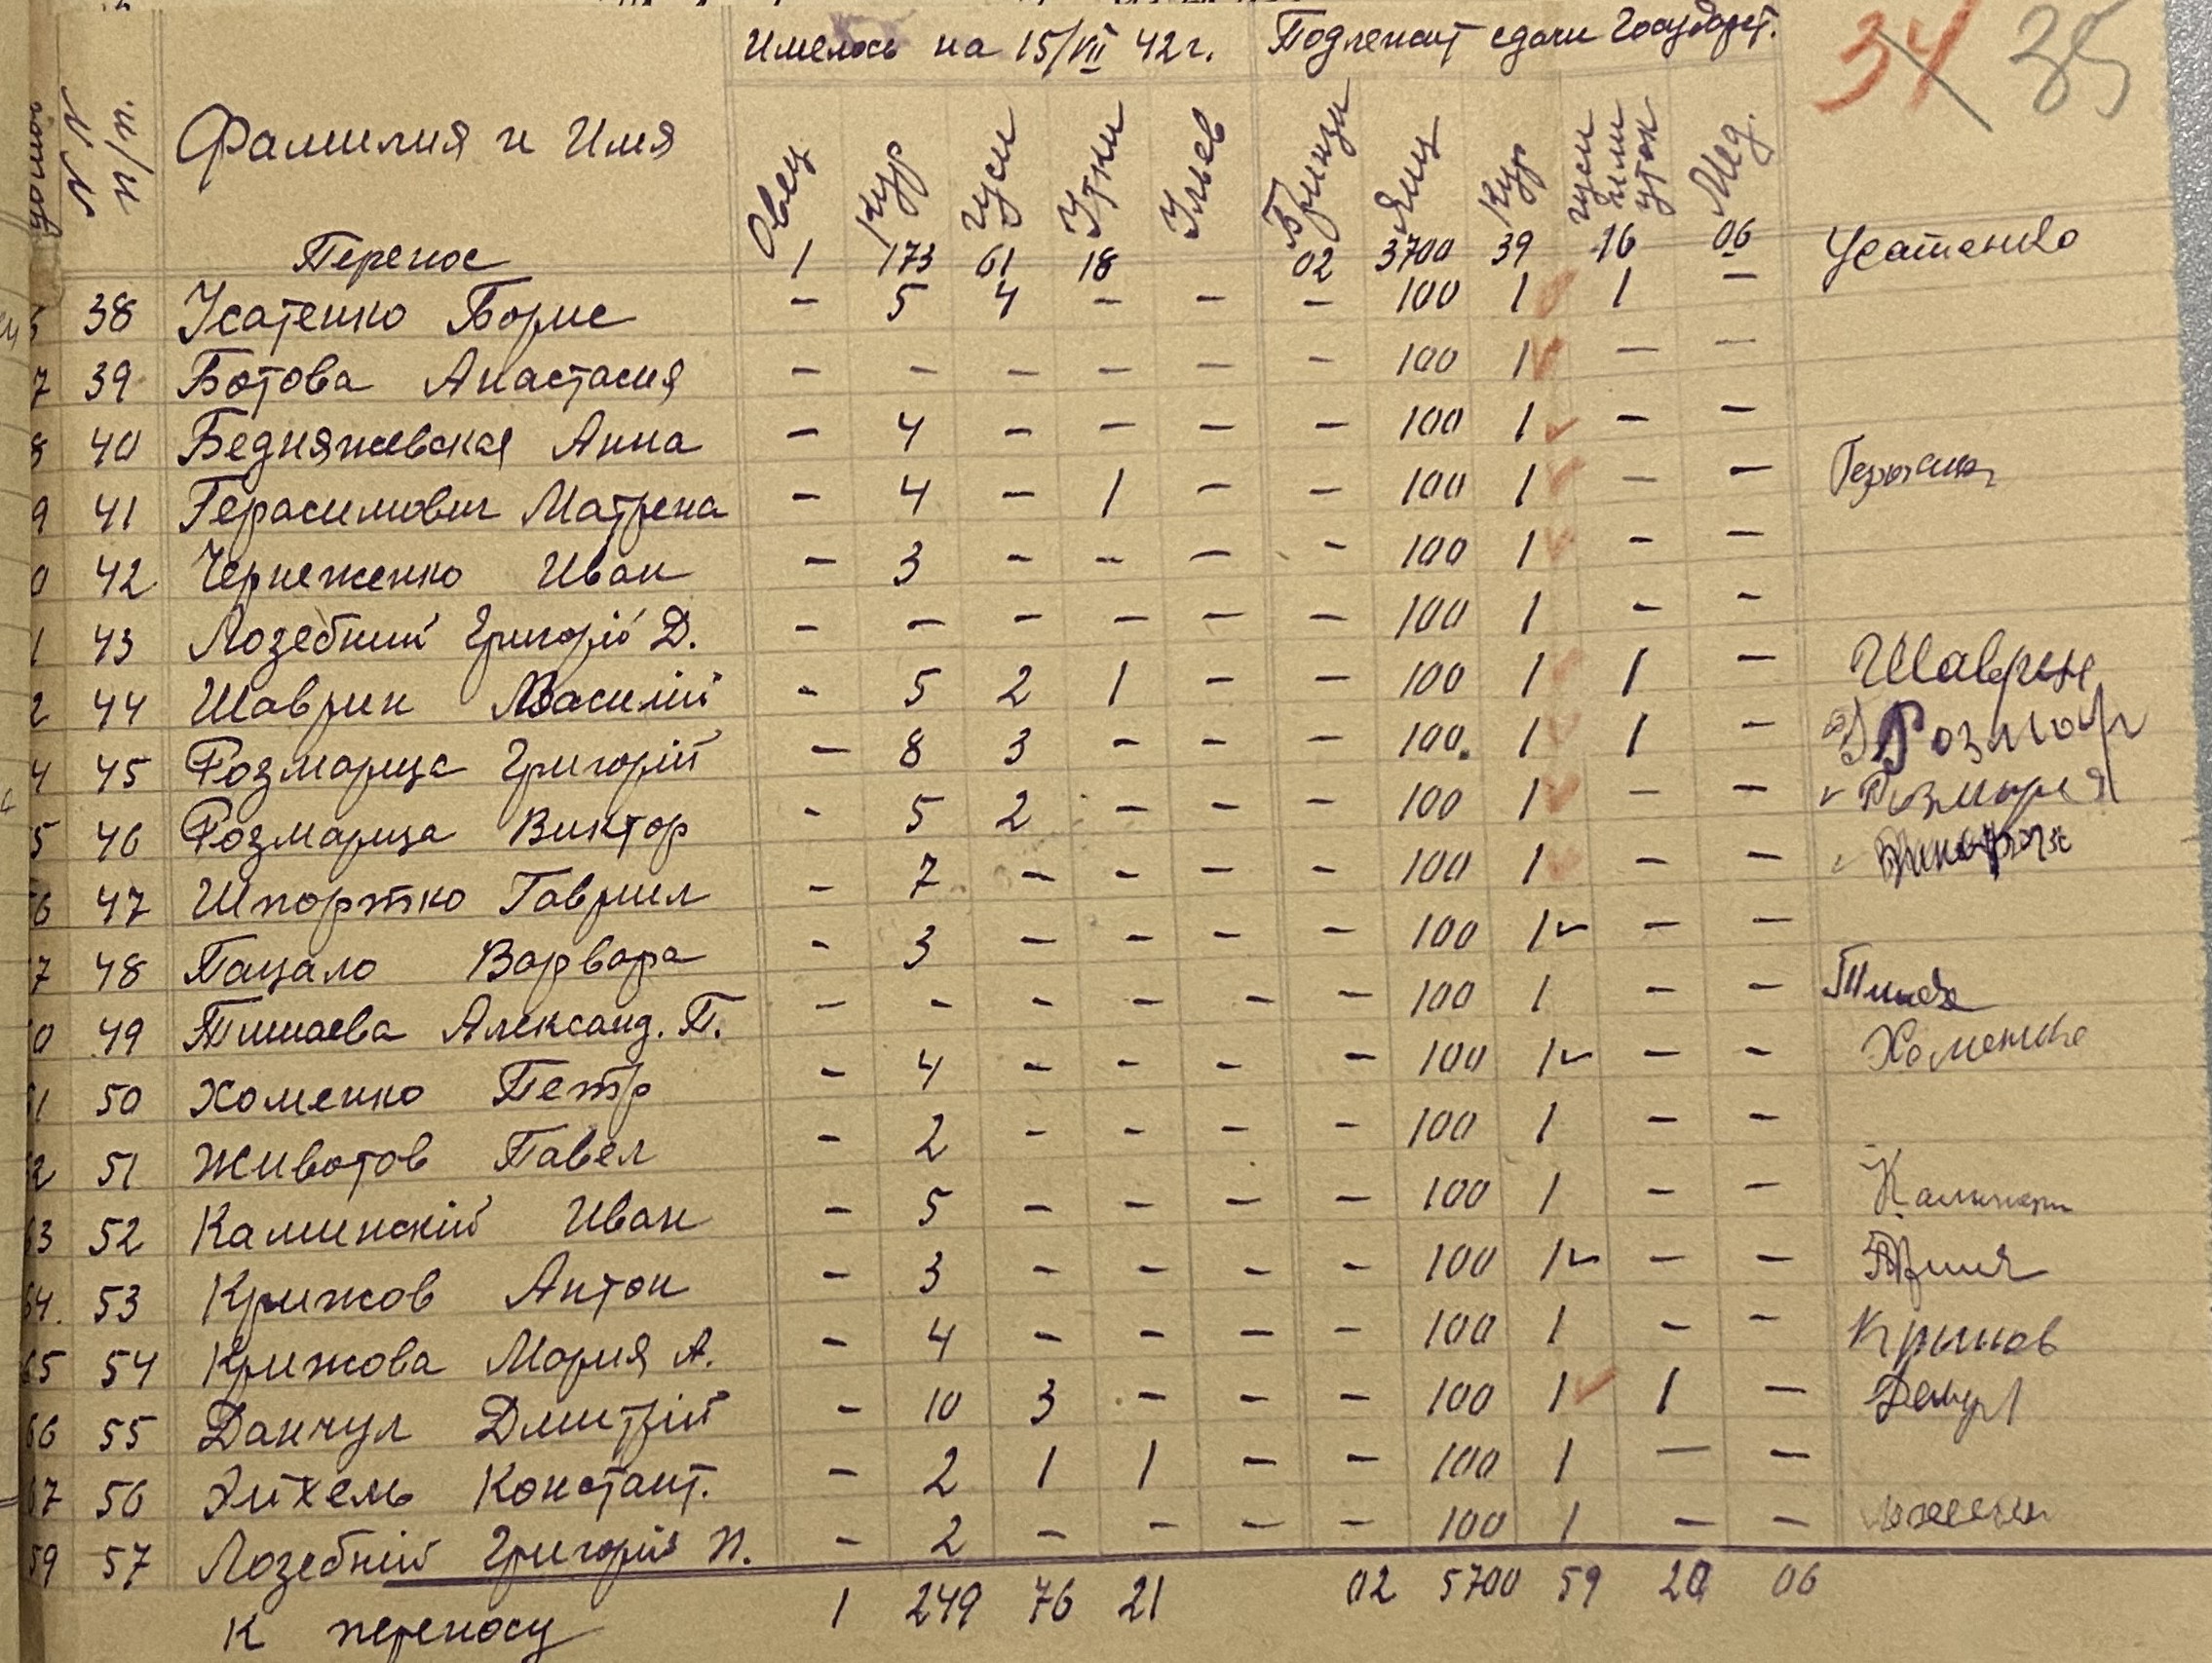 Имелось на 15/VII 42 г. Подлежит сдачи Государст. 34 35
N N п/п. Фамилия и Имя Овец Кур Гуси Утки Ульев Брынзы Яиц Кур Гуси или уток Мед.
Перенос 1 173 61 18 02 3700 39 16 06
38 Усатенко Борис – 5 4 – – – 100 1 1 – Усатенко
7 39 Ботова Анастасия – – – – – – 100 1 – –
8 40 Бедняжевская Анна – 4 – – – – 100 1 – –
9 41 Герасимович Матрена – 4 – 1 – – 100 1 – –
0 42 Чернеженко Иван – 3 – – – – 100 1 – –
1 43 Лозебний Григорій Д. – – – – – – 100 1 – –
2 44 Шаврин Василій – 5 2 1 – – 100 1 1 – Шаврин
4 45 Розмарица Григорій – 8 3 – – – 100. 1 1 – Розмор
5 46 Розмарица Виктор – 5 2 – – – 100 1 – –
56 47 Шпортко Гаврил – 7 – – – – 100 1 – –
57 48 Пацало Варвара – 3 – – – – 100 1 – –
0 49 Тишаева Александ. П. – – – – – – 100 1 – –
61 50 Хоменко Петр – 4 – – – – 100 1 – – Хоменко
62 51 Животов Павел – 2 – – – – 100 1 – –
63 52 Каминскій Иван – 5 – – – – 100 1 – –
64. 53 Крижов Антон – 3 – – – – 100 1 – –
65 54 Крижова Мария А. – 4 – – – – 100 1 – – Крижов
66 55 Данчул Дмитрій – 10 3 – – – 100 1 1 –
67 56 Эйхель Констант. – 2 1 1 – – 100 1 – –
59 57 Лозебній Григорій П. – 2 – – – – 100 1 – –
К переносу 1 249 76 21 02 5700 59 20 06